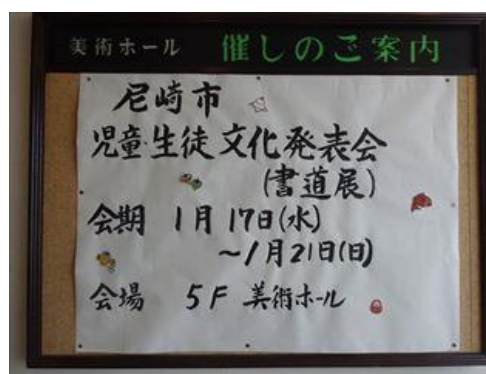 美術ホール 催しのご案内
尼崎市
児童・生徒文化発表会
(書道展)
会期 1月17日(水)
～1月21日(日)
会場 5F 美術ホール